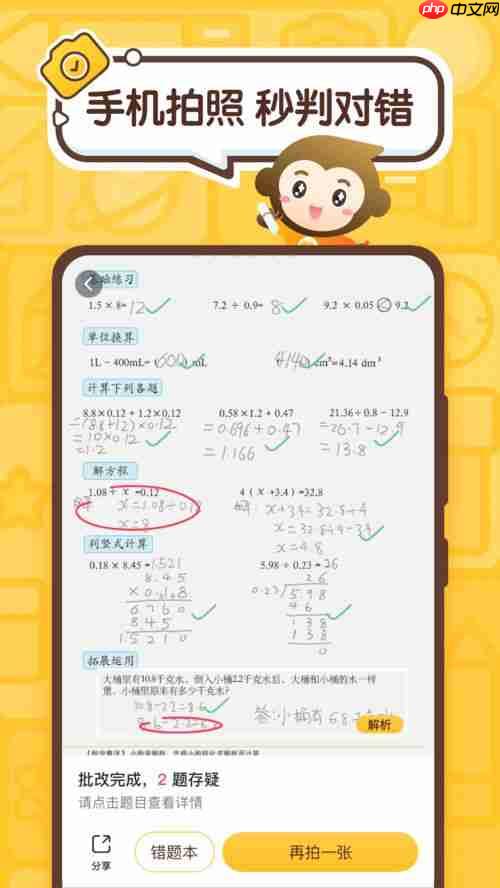 php 中文网
手机拍照 秒判对错
基础练习
1.5 × 8= 12 7.2 ÷ 0.9= 8 9.2 × 0.05 < 9.2
单位换算
1L - 400mL= (600) mL (4140) cm³=4.14 dm³
计算下列各题
8.8×0.12 + 1.2×0.12 0.58×1.2 + 0.47 21.36÷0.8 - 12.9
=(8.8+1.2)×0.12 =0.696+0.47 =26.7-12.9
=10×0.12 =1.166 =13.8
=1.2
解方程
1.08 ÷ x =0.12 4 ( x +3.4 ) =32.8
解: x=1.08÷0.12 解: x+3.4=32.8÷4
x=8 x=32.8÷4-3.4
x=4.8
列竖式计算
0.18 × 8.45 =1.521 5.98 ÷ 0.23 = 26
8.45 26
×0.18 0.23 5.98
6760 46
845 138
1.5210 138
0
拓展运用
大桶里有10.8千克水，倒入小桶2.2千克水后，大桶和小桶的水一样
重，小桶里原来有多少千克水?
10.8-2.2=8.6
8.6-2.2=6.
答:小桶有6.8千克水
解析
批改完成，2 题存疑
请点击题目查看详情
分享
错题本
再拍一张